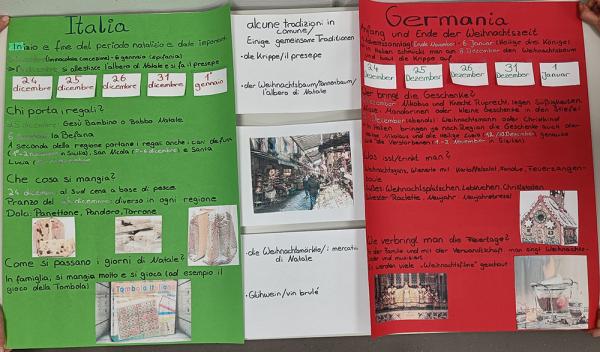 Italia
Inizio e fine del periodo natalizio e date importanti
(Immacolata concezione) - 6 gennaio (epifania)
si allestisce l'albero di Natale e si fa il presepe
24 dicembre
25 dicembre
26 dicembre
31 dicembre
1 gennaio
Chi porta i regali?
Gesú Bambino o Babbo Natale
la Befana
A seconda della regione portano i regali anche i cari defunti
in Sicilia), San Nicola e Santa
Lucia
Che cosa si mangia?
24 al Sud cena a base di pesce
Pranzo del diverso in ogni regione
Dolci: Panettone, Pandoro, Torrone
Come si passano i giorni di Natale?
In famiglia, si mangia molto e si gioca (ad esempio il
gioco della Tombola)
Tombola Italiana
alcune tradizioni in
comune/
Einige gemeinsame Traditionen
-die Krippe/il presepe
-der Weihnachtsbaum/Tannenbaum/
l'albero di Natale
-die Weihnachtsmärkte/i mercati
di Natale
-Glühwein/vin brulé
Germania
Anfang und Ende der Weihnachtszeit
Ende November - 6 Januar (Heilige drei Könige)
In Italien schmückt man am 8 Dezember den Weihnachtsbaum
und baut die Krippe auf
24 Dezember
25 Dezember
26 Dezember
31 Dezember
1 Januar
Wer bringt die Geschenke?
Nikolaus und Knecht Ruprecht legen Süßigkeiten,
Mandarinen oder kleine Geschenke in den Stiefel
Dezember (abends): Weihnachtsmann oder Christkind
In Italien bringen je nach Region die Geschenke auch der
Nikolaus und die heilige Lucia 13 Dezember genauso
wie die Verstorbenen 1.-2 November in Sizilien)
Was isst/trinkt man?
Weihnachtsgans, Würste mit Kartoffelsalat, Fondue, Feuerzangen-
bowle
Süßes: Weihnachtsplätzchen, Lebkuchen, Christstollen
Silvester: Raclette, Neujahr: Neujahrsbrezel
Wie verbringt man die Feiertage?
der Familie und mit der Verwandtschaft man singt Weihnachts-
und musiziert
werden viele „Weihnachtsfilme" geschaut